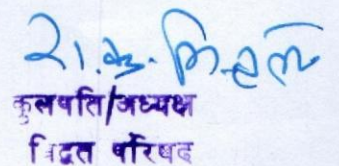 रा. कु. मित्तल
कुलपति/अध्यक्ष
विद्वत परिषद